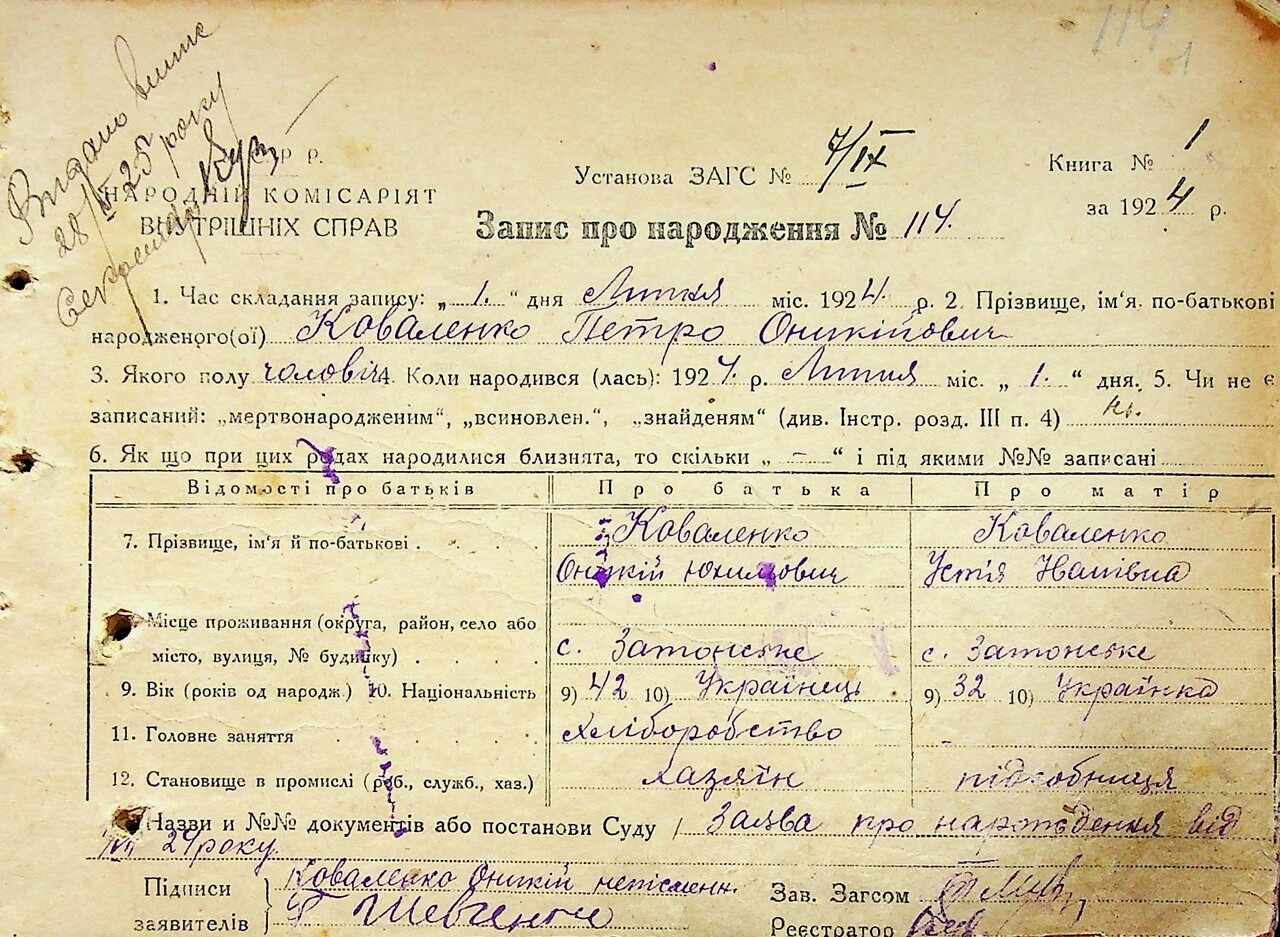 114
1
Видано витяг
28/ 25 року
Секретар
Р Р.
НАРОДНІЙ КОМІСАРІЯТ
ВНУТРІШНІХ СПРАВ
Установа ЗАГС № 7/IX
Книга № 1
за 1924 р.
Запис про народження № 114.
1. Час складання запису: „ 1. “ дня Липня міс. 1924. р. 2 Прізвище, ім'я. по-батькові
народженого(ої) Коваленко Петро Оникійович
3. Якого полу чоловіч 4. Коли народився (лась): 1924. р. Липня міс. „ 1. “ дня. 5. Чи не є
записаний: „мертвонародженим“, „всиновлен.“, „знайденям“ (див. Інстр. розд. III п. 4) ні.
6. Як що при цих родах народилися близнята, то скільки „ – “ і під якими №№ записані
Відомості про батьків Про батька Про матір
7. Прізвище, ім'я й по-батькові . Коваленко Коваленко
Оникій Юхимович Устія
Місце проживання (округа, район, село або
місто, вулиця, № будинку) с. Затонське с. Затонське
9. Вік (років од народж.) 10. Національність 9) 42 10) Українець 9) 32 10) Українка
11. Головне заняття хліборобство
12. Становище в промислі (роб., служб., хаз.) хазяїн підсобниця
Назви и №№ документів або постанови Суду Заява про народження від
24 року.
Підписи Коваленко Оникій неписьмен. Зав. Загсом
заявителів Г Шевченко Реєстратор